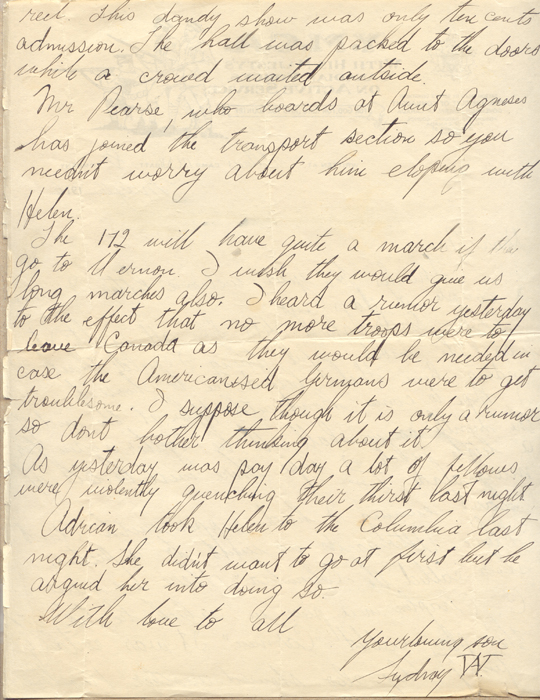 reel. This dandy show was only ten cents
admission. The hall was packed to the doors
while a crowd waited outside.
Mr Pearse, who boards at Aunt Agneses
has joined the transport section so you
needn't worry about him eloping with
Helen.
The 172 will have quite a march if the
go to Vernon. I wish they would give us
long marches also. I heard a rumor yesterday
to the effect that no more troops were to
leave Canada as they would be needed in
case the Americanised Germans were to get
troublesome. I suppose though it is only a rumor
so dont bother thinking about it.
As yesterday was pay day a lot of fellows
were violently quenching their thirst last night
Adrian took Helen to the Columbia last
night. She didn't want to go at first but he
argued her into doing so.
With love to all
your loving son
Sydney W.